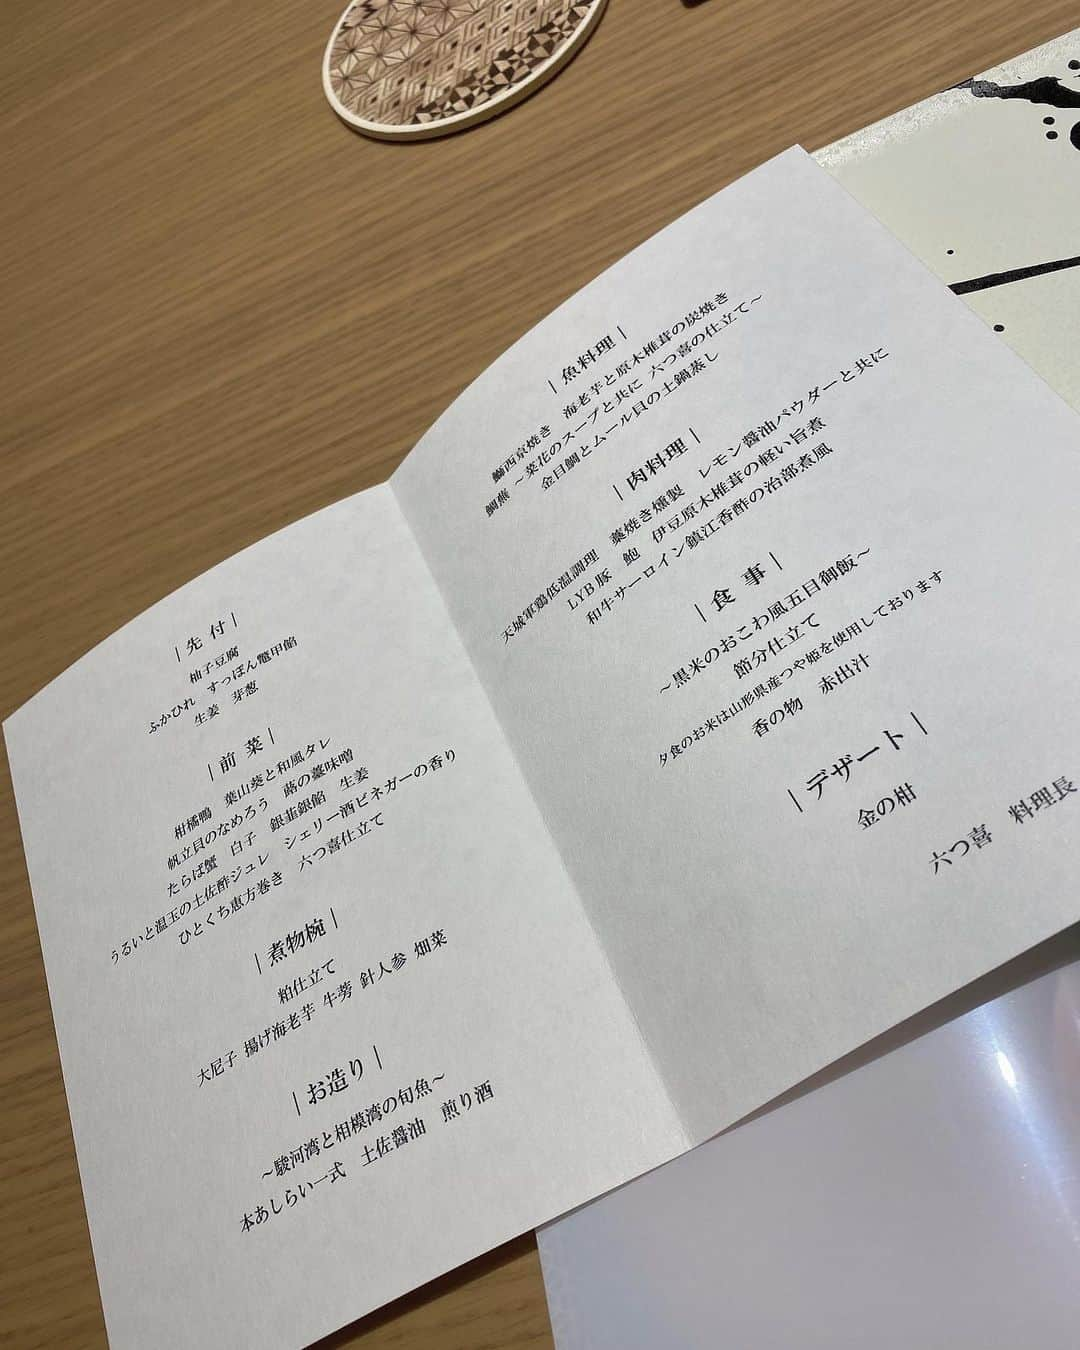 | 先 付 |
柚子豆腐
ふかひれ　すっぽん鼈甲餡
生姜　芽葱
| 前 菜 |
柑橘鴨　葉山葵と和風タレ
帆立貝のなめろう　蕗の薹味噌
たらば蟹　白子　銀韮銀餡　生姜
うるいと温玉の土佐酢ジュレ　シェリー酒ビネガーの香り
ひとくち恵方巻き　六つ喜仕立て
| 煮物椀 |
粕仕立て
大尼子 揚げ海老芋 牛蒡 針人参 畑菜
| お造り |
～駿河湾と相模湾の旬魚～
本あしらい一式　土佐醤油　煎り酒
| 魚料理 |
鰤西京焼き　海老芋と原木椎茸の炭焼き
鯛蕪 ～菜花のスープと共に 六つ喜の仕立て～
金目鯛とムール貝の土鍋蒸し
| 肉料理 |
天城軍鶏低温調理　藁焼き燻製　レモン醤油パウダーと共に
LYB豚　鮑　伊豆原木椎茸の軽い旨煮
和牛サーロイン鎮江香酢の治部煮風
| 食 事 |
～黒米のおこわ風五目御飯～
節分仕立て
夕食のお米は山形県産つや姫を使用しております
香の物　赤出汁
| デザート |
金の柑
六つ喜　料理長